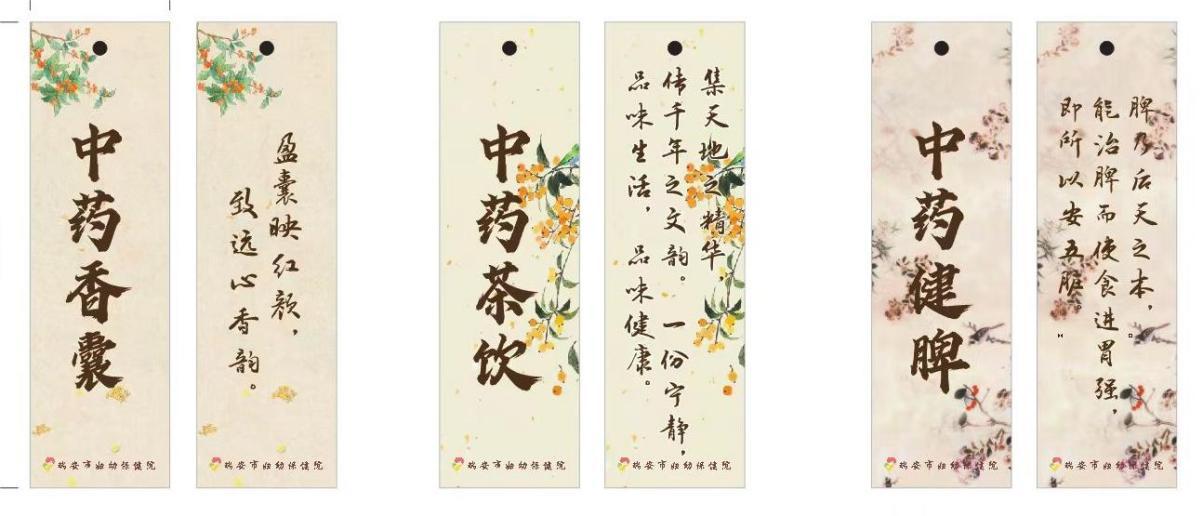 中药香囊
瑞安市妇幼保健院
盈囊映红颜，
致远心香韵。
瑞安市妇幼保健院
中药茶饮
瑞安市妇幼保健院
集天地之精华，
传千年之文韵。一份宁静，
品味生活，品味健康。
瑞安市妇幼保健院
中药健脾
瑞安市妇幼保健院
脾乃后天之本，
能治脾而使食进胃强，
即所以安五脏。"
瑞安市妇幼保健院